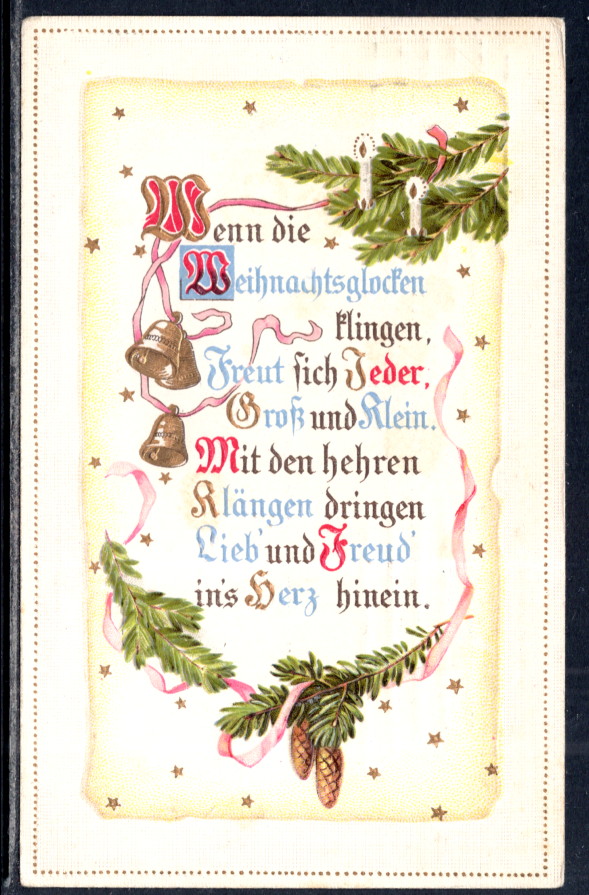 Wenn die
Weihnachtsglocken
klingen,
Freut sich Jeder,
Groß und Klein.
Mit den hehren
Klängen dringen
Lieb' und Freud'
in's Herz hinein.